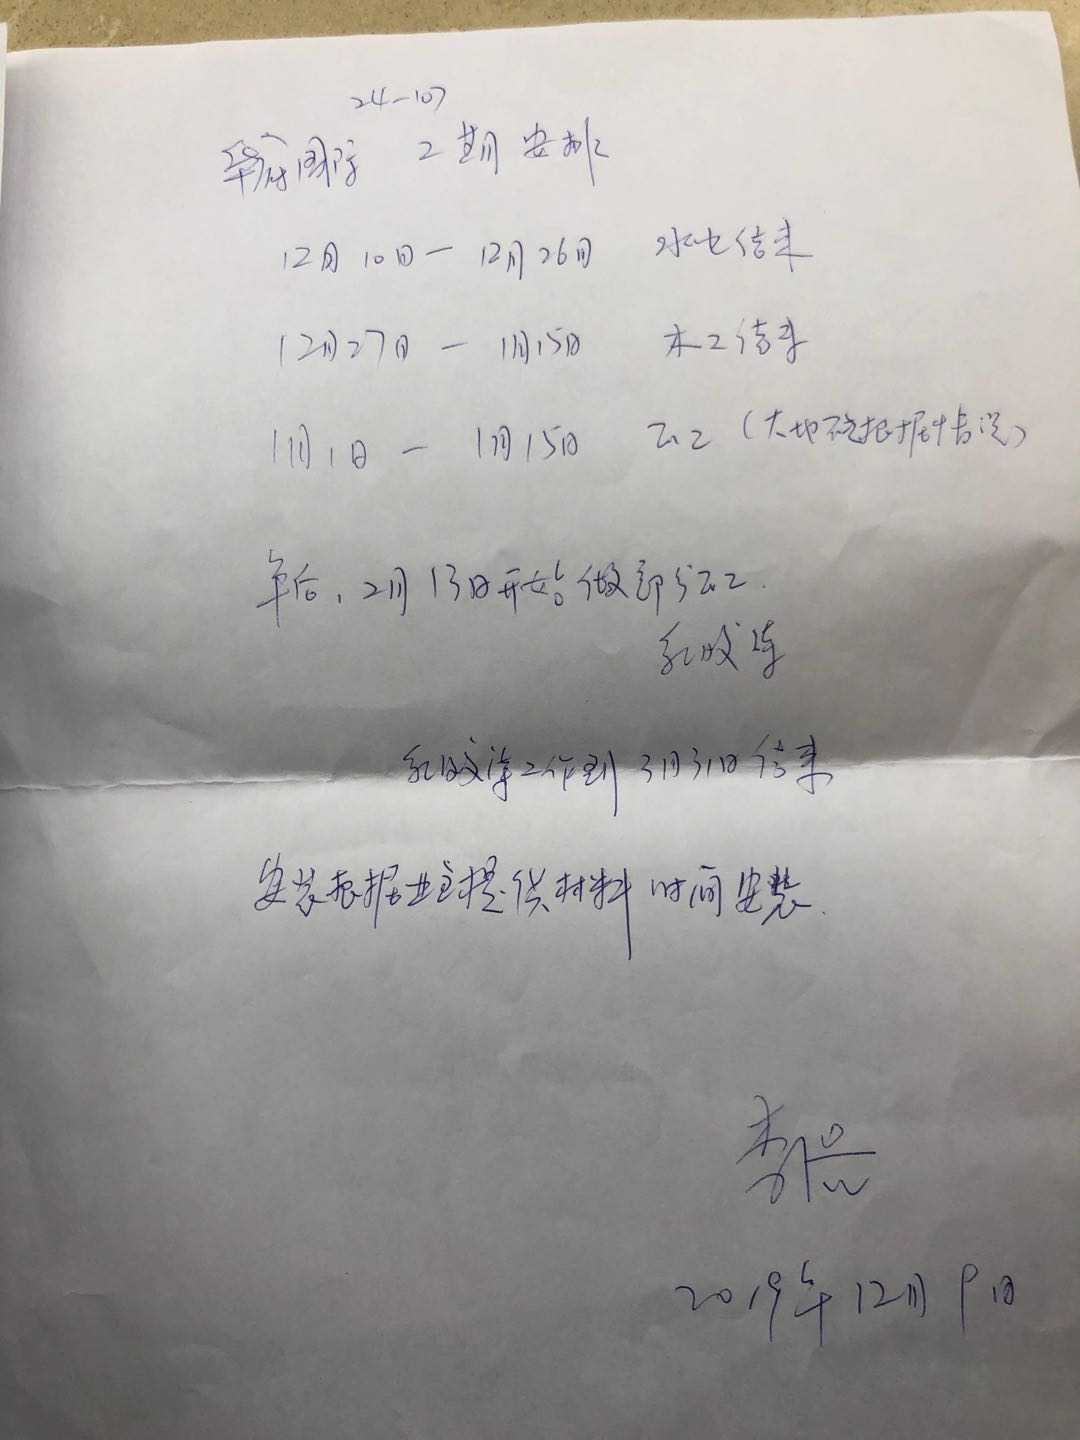 24-107
华府国际 工期安排
12月10日一12月26日 水电结束
12月27日 一 1月15日 木工结束
1月1日 一 1月15日 瓦工（大地砖根据情况）
年后，2月13日开始做部分瓦工.
乳胶漆
乳胶漆工作到3月31日结束
安装根据业主提供材料时间安装.
2019年12月9日